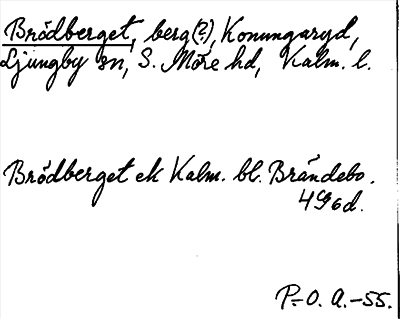 Brödberget, berg(?), Konungaryd,
Ljungby sn, S. Möre hd, Kalm. l.
Brödberget ek Kalm. bl. Brändebo.
4G6d.
P.-O. A.-55.